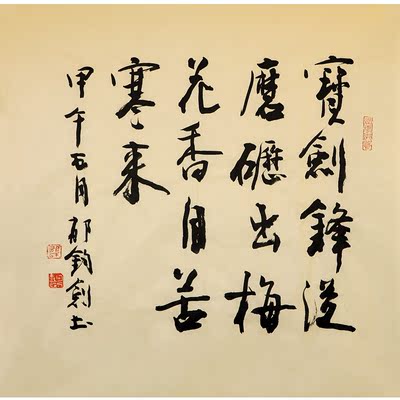 寶劍鋒從
磨礪出梅
花香自苦
寒来
甲午五月郁鈞劍书